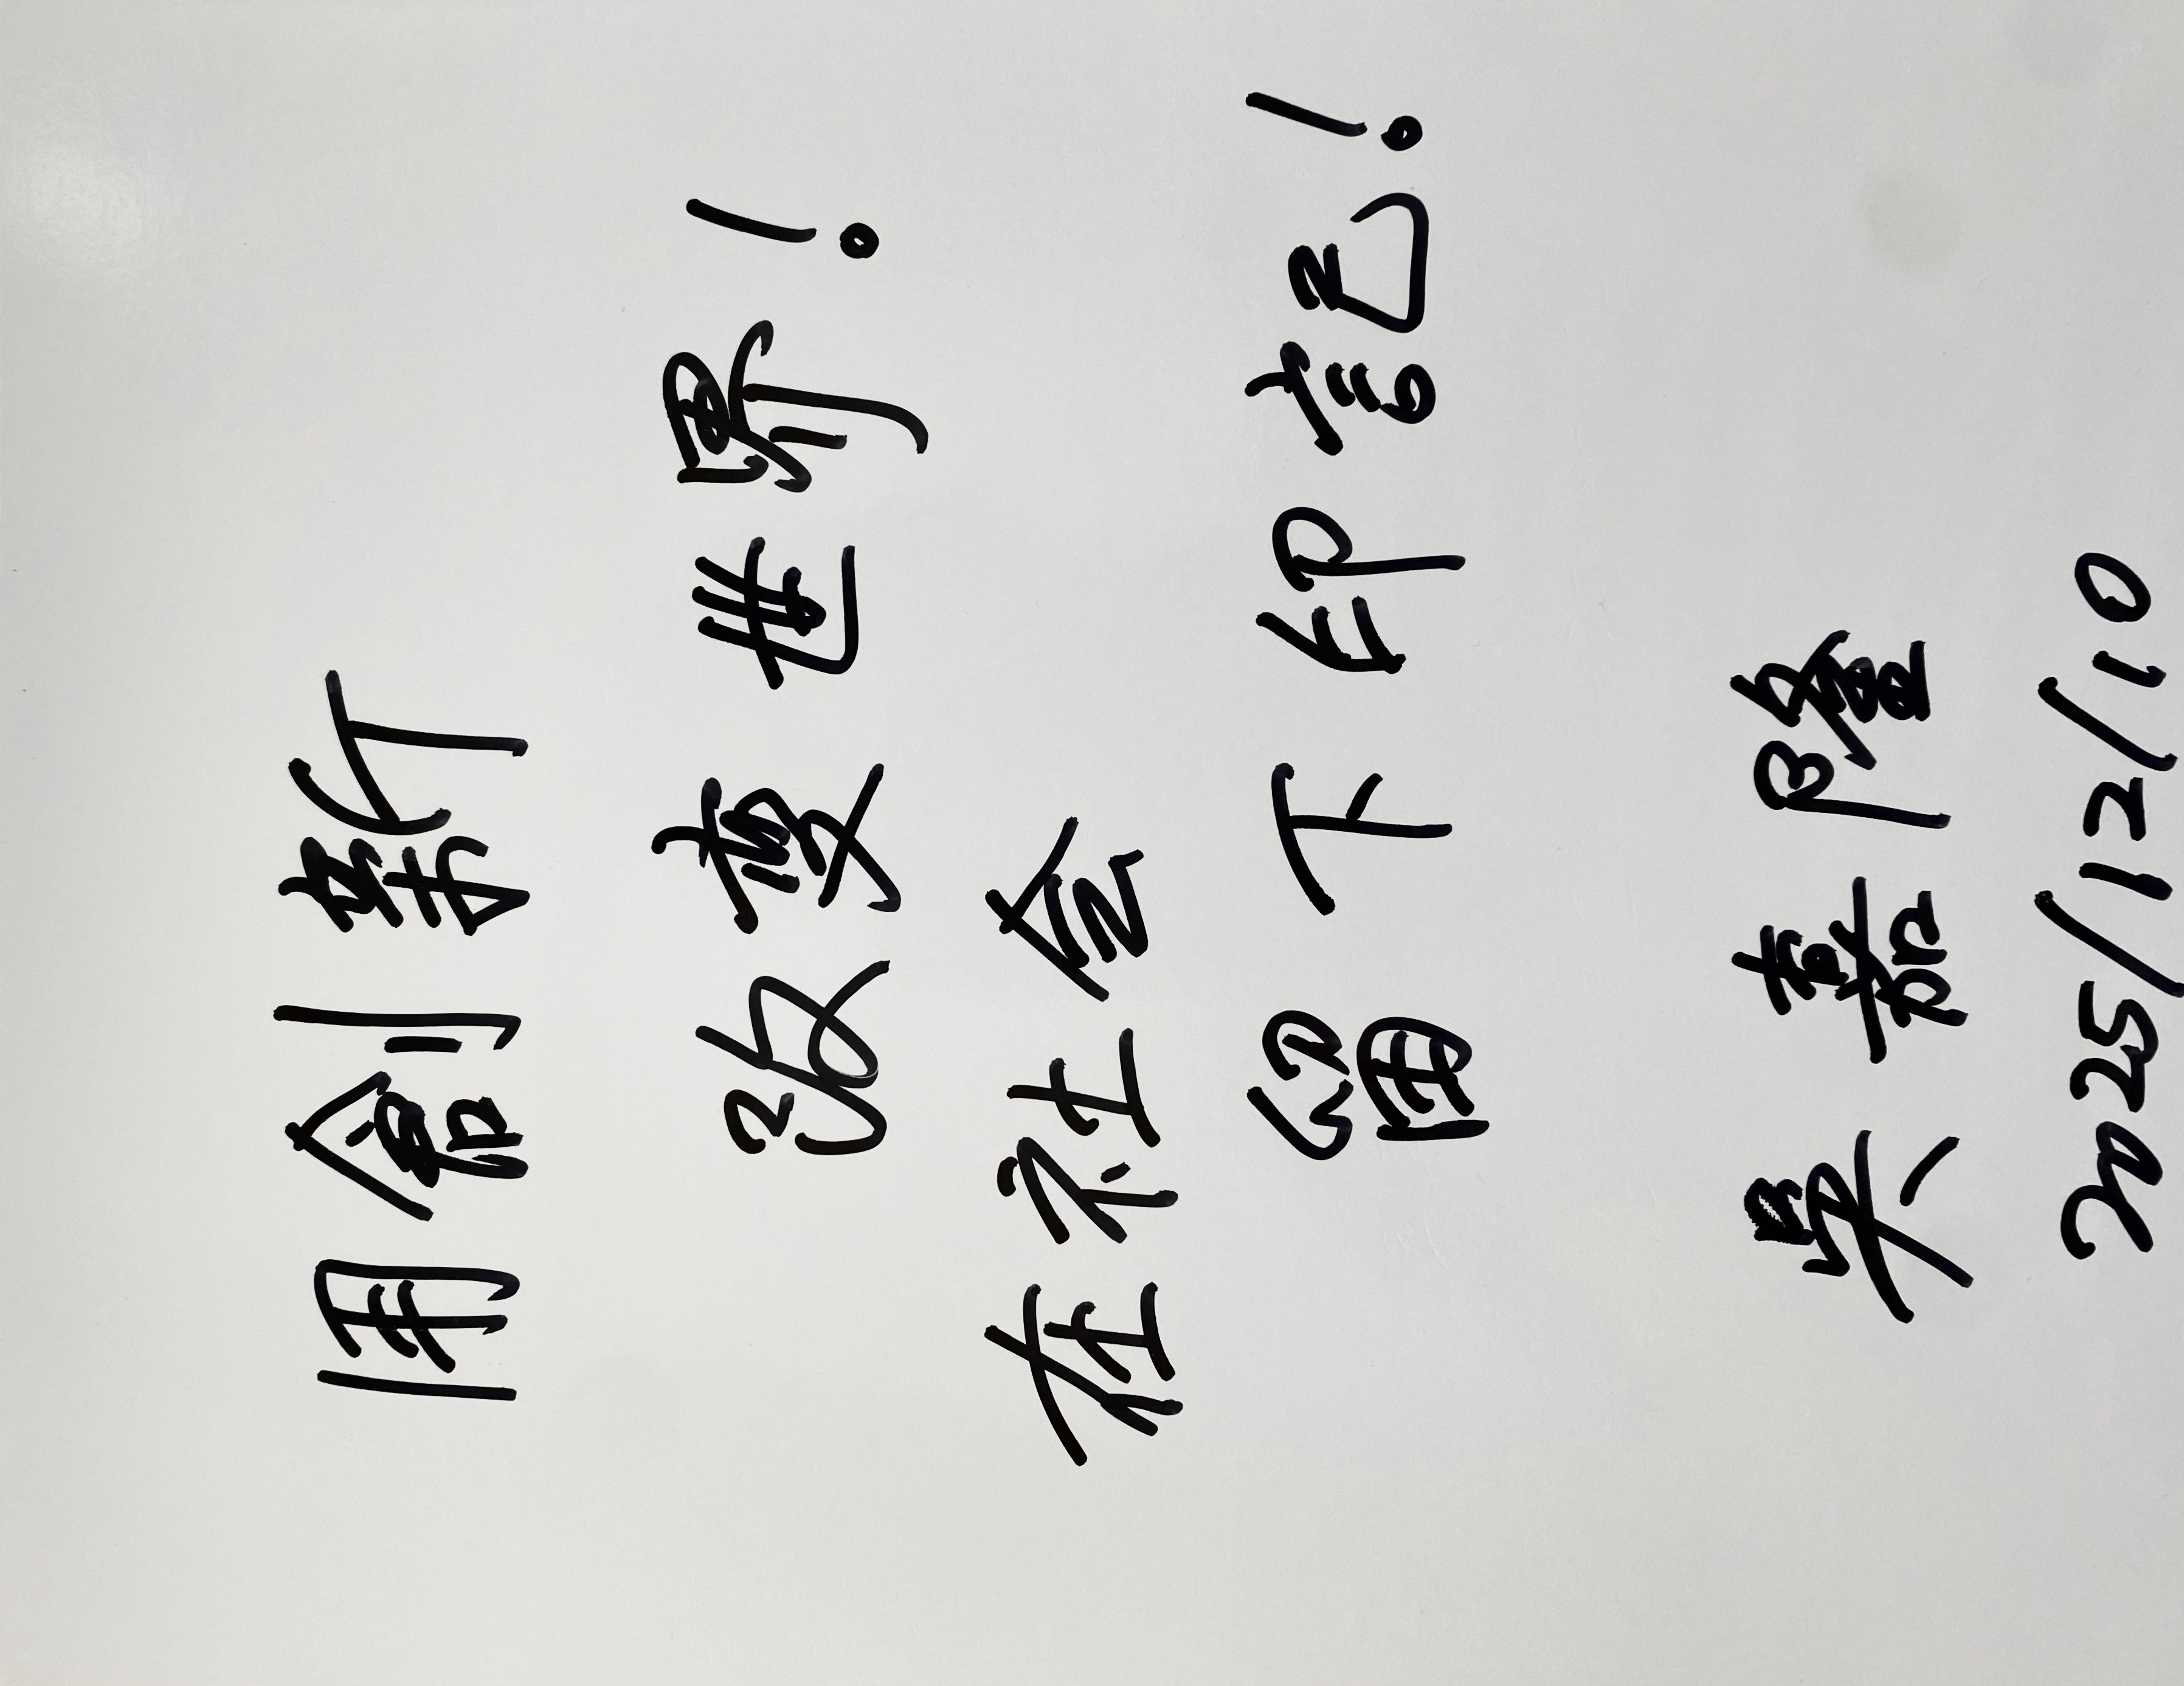 用創新
改變世界!
在社会
留下印記!
吳
2025/12/10